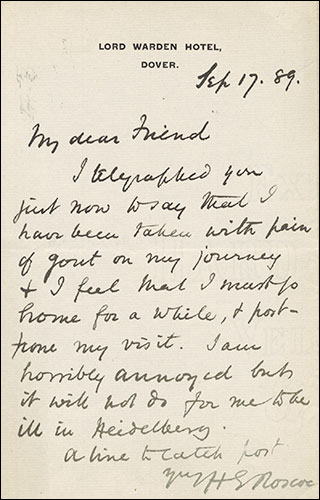 LORD WARDEN HOTEL,
DOVER.
Sep 17. 89.
My dear Friend
I telegraphed you
just now to say that I
have been taken with pain
of gout on my journey
& I feel that I must go
home for a while, & post-
pone my visit. I am
horribly annoyed but
it will not do for me to be
ill in Heidelberg.
A line to catch post
yrs H E Roscoe